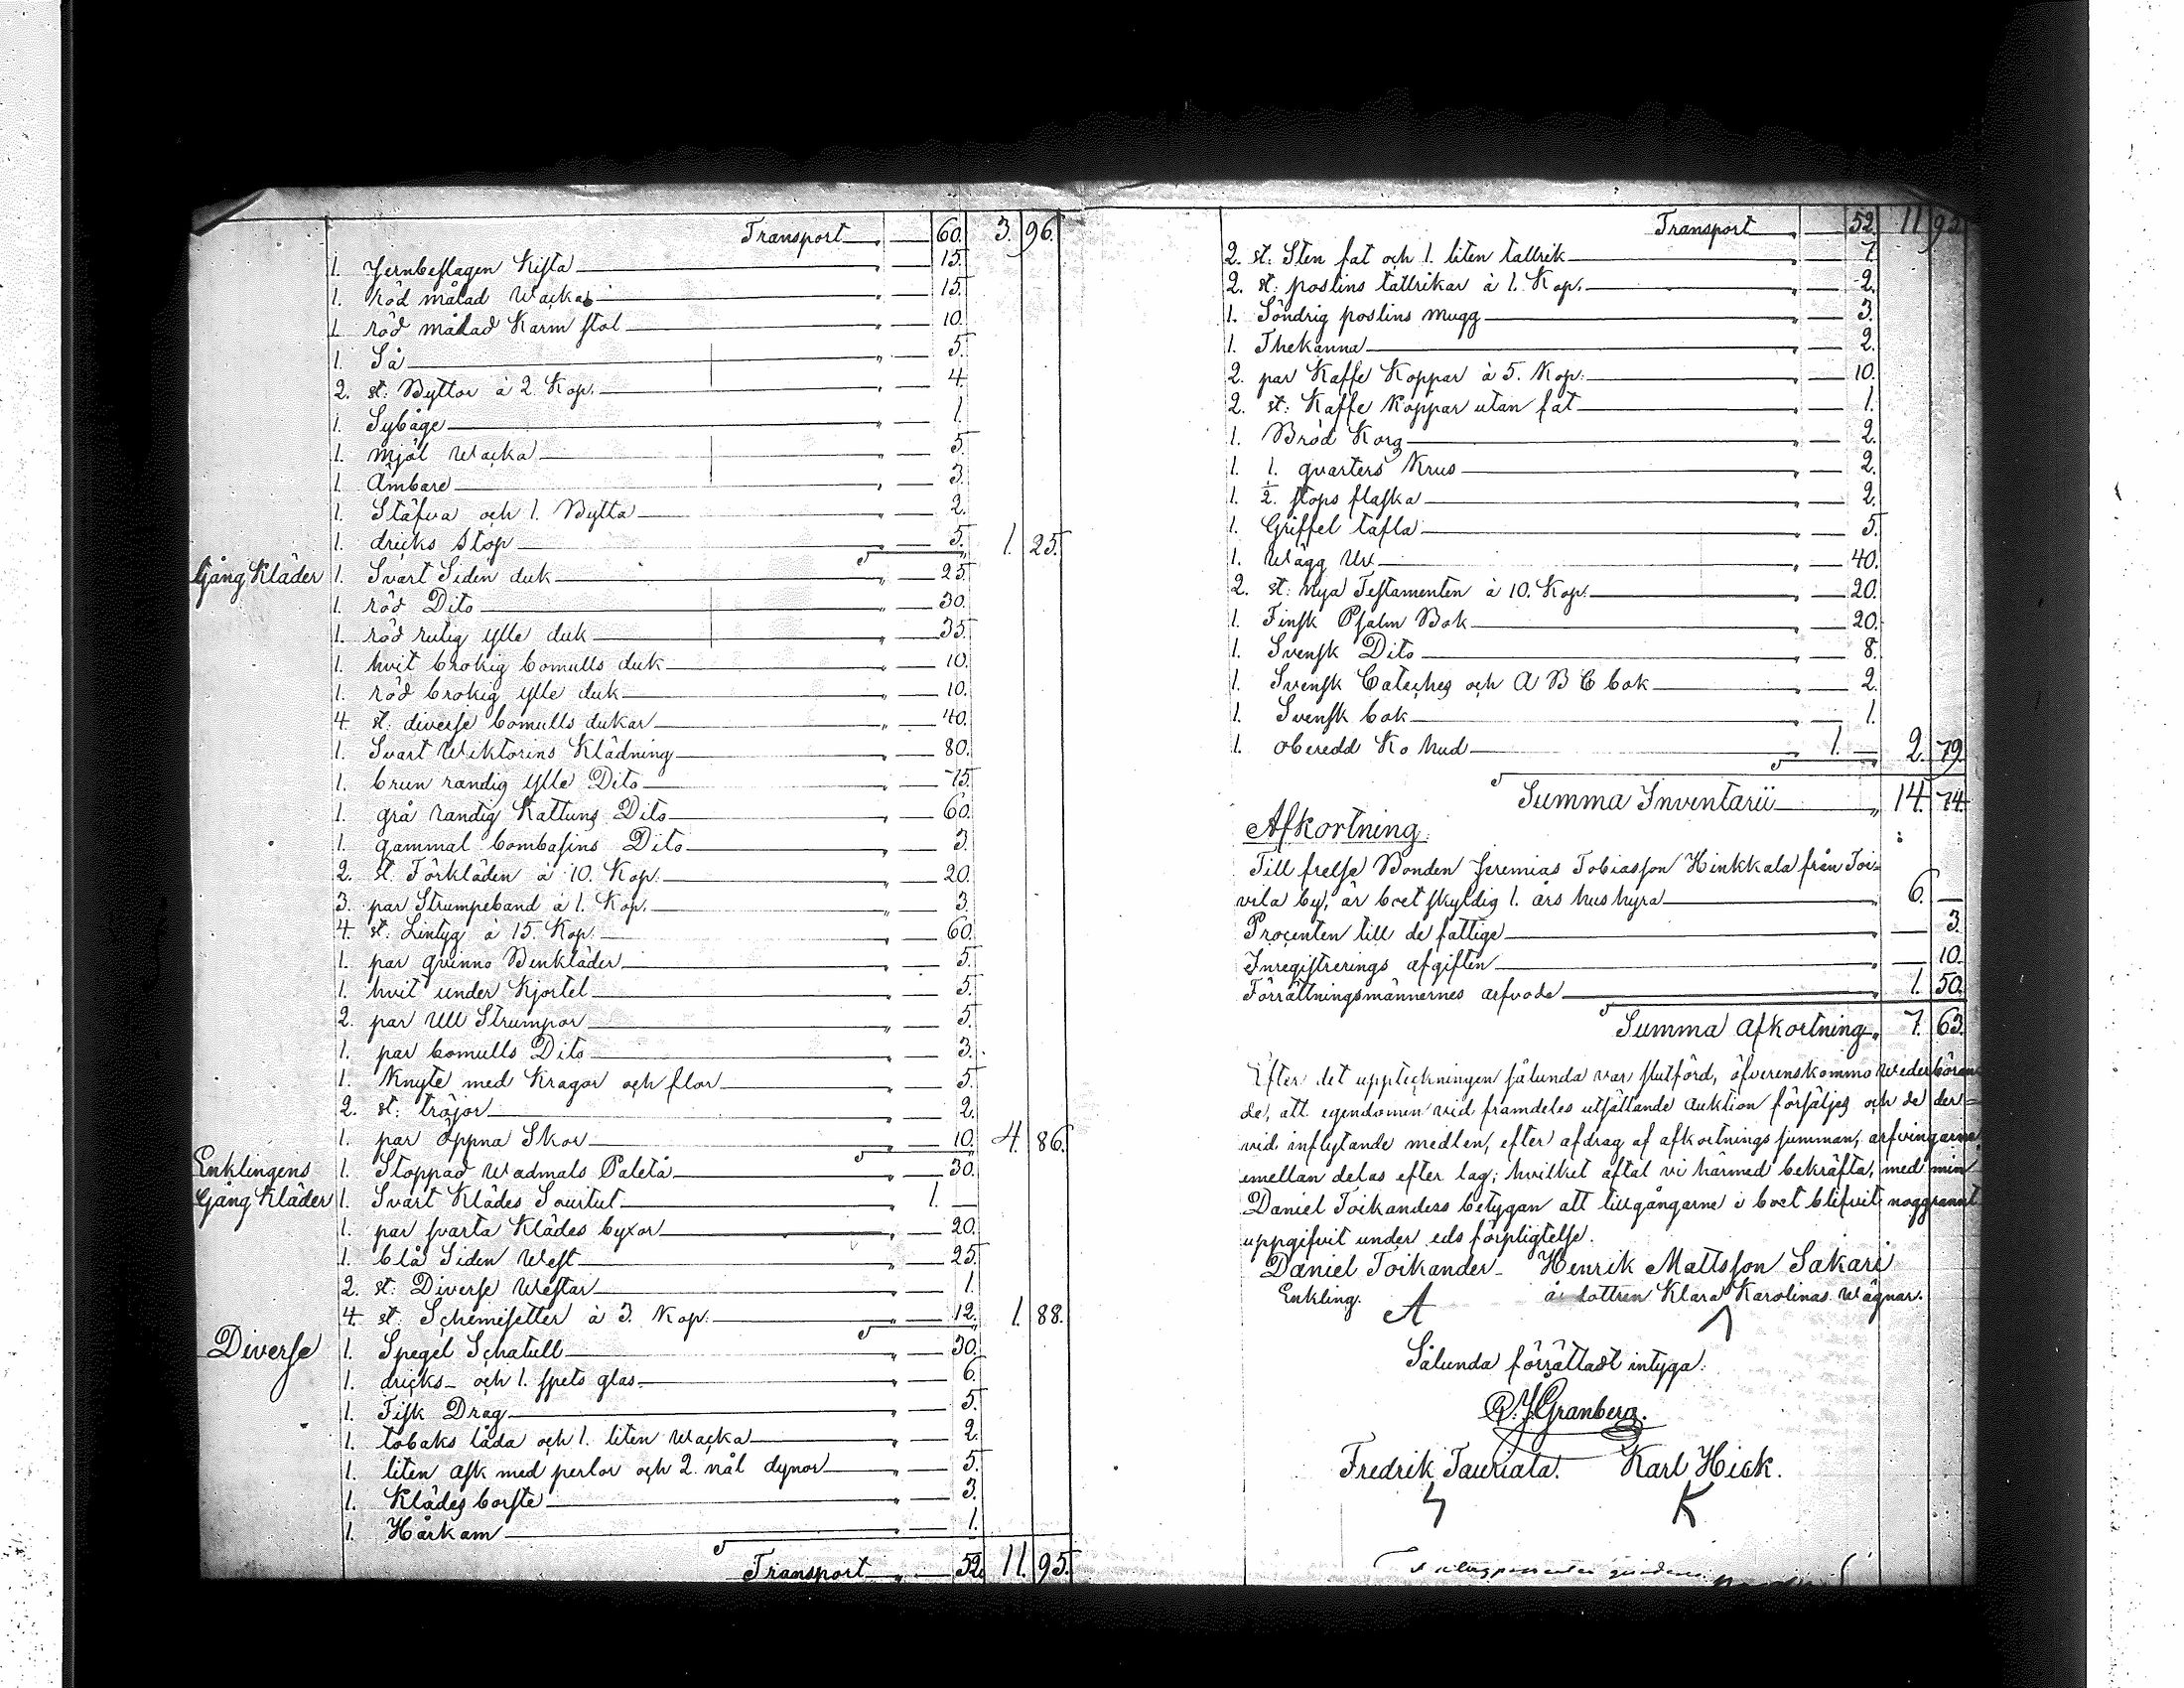 Transport " — 60. 3. 96.
1. Jernbeslagen Kista " — 15.
1. röd målad Wacka " — 15.
1. röd målad Karm stol " — 10.
1. Så " — 5.
2. st: Byttor à 2 Kop. " — 4.
1. Sybåge " — 1.
1. mjöl Wacka " — 5.
1. Ämbare " — 3.
1. Stäfva och 1. Bytta " — 2.
1. dricks Stop " — 5. 1. 25.
Gång Kläder 1. Svart Siden duk " — 25.
1. röd Dito " — 30.
1. röd rutig ylle duk " — 35.
1. hvit brokig bomulls duk " — 10.
1. röd brokig ylle duk " — 10.
4. st: diverse bomulls dukar " — 40.
1. Svart Wiktorins Klädning " — 80.
1. brun randig ylle Dito " — 75.
1. grå randig Kattuns Dito " — 60.
1. gammal bombasins Dito " — 3.
2. st. Förkläden à 10. Kop. " — 20.
3. par Strumpeband à 1. Kop. " — 3.
4. st. Lintyg à 15. Kop. " — 60.
1. par qvinno Benkläder " — 5.
1. hvit under Kjortel " — 5.
2. par Ull Strumpor " — 5.
1. par bomulls Dito " — 3.
1. Knyte med Kragar och flor " — 5.
2. st: tröjor " — 2.
1. par öppna Skor " — 10. 4. 86.
Enklingens 1. Stoppad Wadmals Paletå " — 30.
Gång Kläder 1. Svart Klädes Sourtut 1. —
1. par svarta Klädes byxor " — 20.
1. blå Siden West " — 25.
2. st: Diverse Westar " — 1.
4. st: Schemisetter à 3. Kop: " — 12. 1. 88.
Diverse 1. Spegel Schatull " — 30.
1. dricks- och 1. spets glas " — 6.
1. Fisk Drag " — 5.
1. tobaks låda och 1. liten Wacka " — 2.
1. liten ask med perlor och 2. nål dynor " — 5.
1. Klädes borste " — 3.
1. Hårkam " — 1.
Transport " — 52. 11. 95.
Transport " 52. 11 95.
2. st: Sten fat och 1. liten tallrik " — 7.
2. st: poslins tallrikar à 1. Kop. " — 2.
1. Söndrig poslins mugg " — 3.
1. Thekanna " — 2.
2. par Kaffe Koppar à 5. Kop: " — 10.
2. st: Kaffe Koppar utan fat " — 1.
1. Bröd Korg " — 2.
1. 1. qvarters Krus " — 2.
1. ½. stops flaska " — 2.
1. Griffel tafla " — 5.
1. Wägg Ur " — 40.
2. st: Nya Testamenten à 10. Kop. " — 20.
1. Finsk Psalm Bok " — 20.
1. Svensk Dito " — 8.
1. Svensk Cateches och A B C bok " — 2.
1. Svensk bok " — 1.
1. oberedd Ko hud 1. — 2. 79.
Summa Inventarii " 14. 74.
Afkortning:
Till frelse Bonden Jeremias Tobiasson Hinkkala från Toi-
vila by, är boet skyldig 1. års hus hyra " 6. —
Procenten till de fattige " — 3.
Inregistrerings afgiften " — 10.
Förrättningsmännernes arfvode " 1. 50.
Summa Afkortning " 7. 63.
Efter det uppteckningen sålunda var slutförd, öfverenskommo Wederböran-
de, att egendomen vid framdeles utsättande Auktion försäljes och de der-
vid inflytande medlen, efter afdrag af afkortnings summan, arfvingarne
emellan delas efter lag; hvilket aftal vi härmed bekräfta, med min
Daniel Toikanders betygan att tillgångarne i boet blifvit noggrannt
uppgifvit under eds förpligtelse.
Daniel Toikander Henrik Mattsson Sakari
Enkling. å dottren Klara Karolinas Wägnar.
A
Sålunda förrättadt intyga:
Granberg.
Fredrik Tauriala. Karl Hick.
K